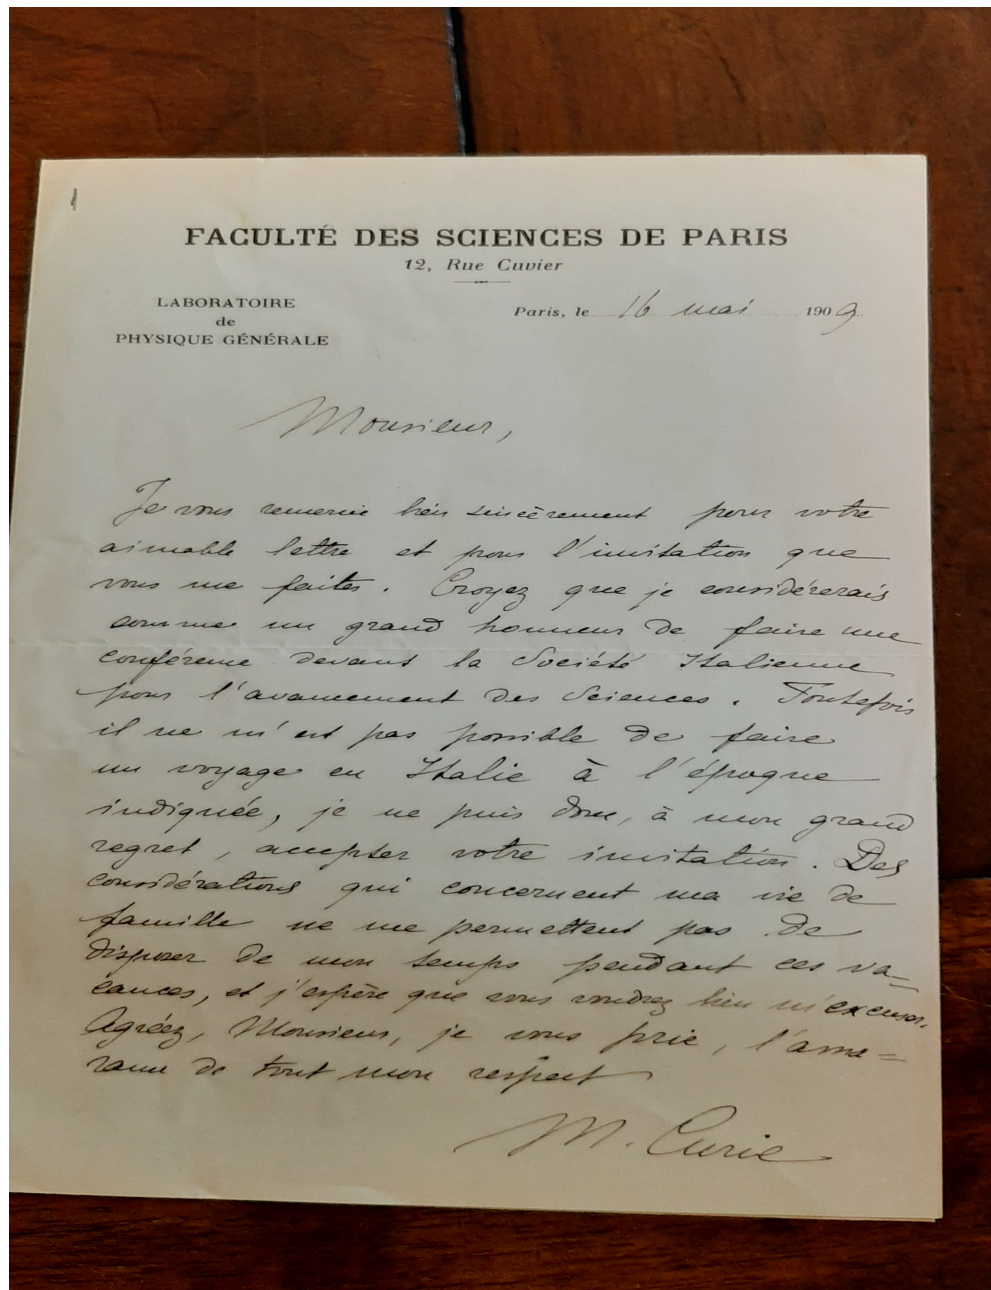 FACULTÉ DES SCIENCES DE PARIS
12, Rue Cuvier
LABORATOIRE
de
PHYSIQUE GÉNÉRALE
Paris, le 16 mai 1909
Monsieur,
Je vous remercie bien sincèrement pour votre
aimable lettre et pour l'invitation que
vous me faites. Croyez que je considérerais
comme un grand honneur de faire une
conférence devant la Société Italienne
pour l'avancement des Sciences. Toutefois
il ne m'est pas possible de faire
un voyage en Italie à l'époque
indiquée, je ne puis donc, à mon grand
regret, accepter votre invitation. Des
considérations qui concernent ma vie de
famille ne me permettent pas de
disposer de mon temps pendant ces va=
cances, et j'espère que vous voudrez bien m'excuser.
Agréez, Monsieur, je vous prie, l'assu=
rance de tout mon respect
M. Curie